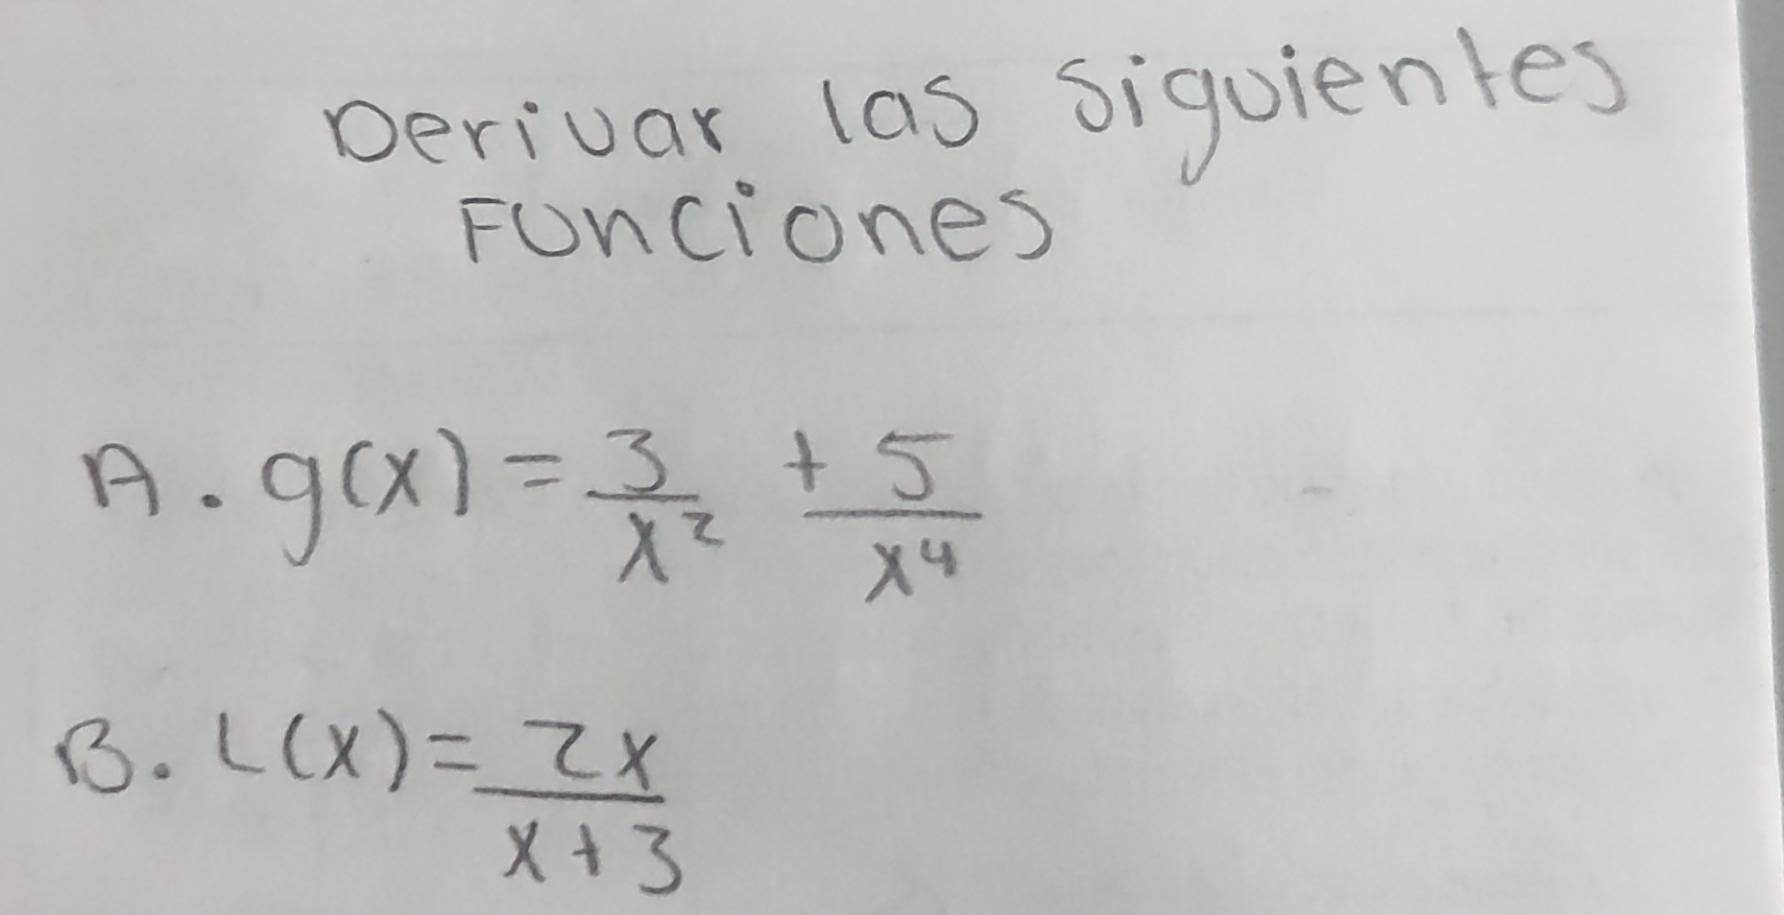 Derivar las siguientes
Funciones
A. g(x) = 3/x² + 5/x⁴
B. L(x) = 2x/x+3